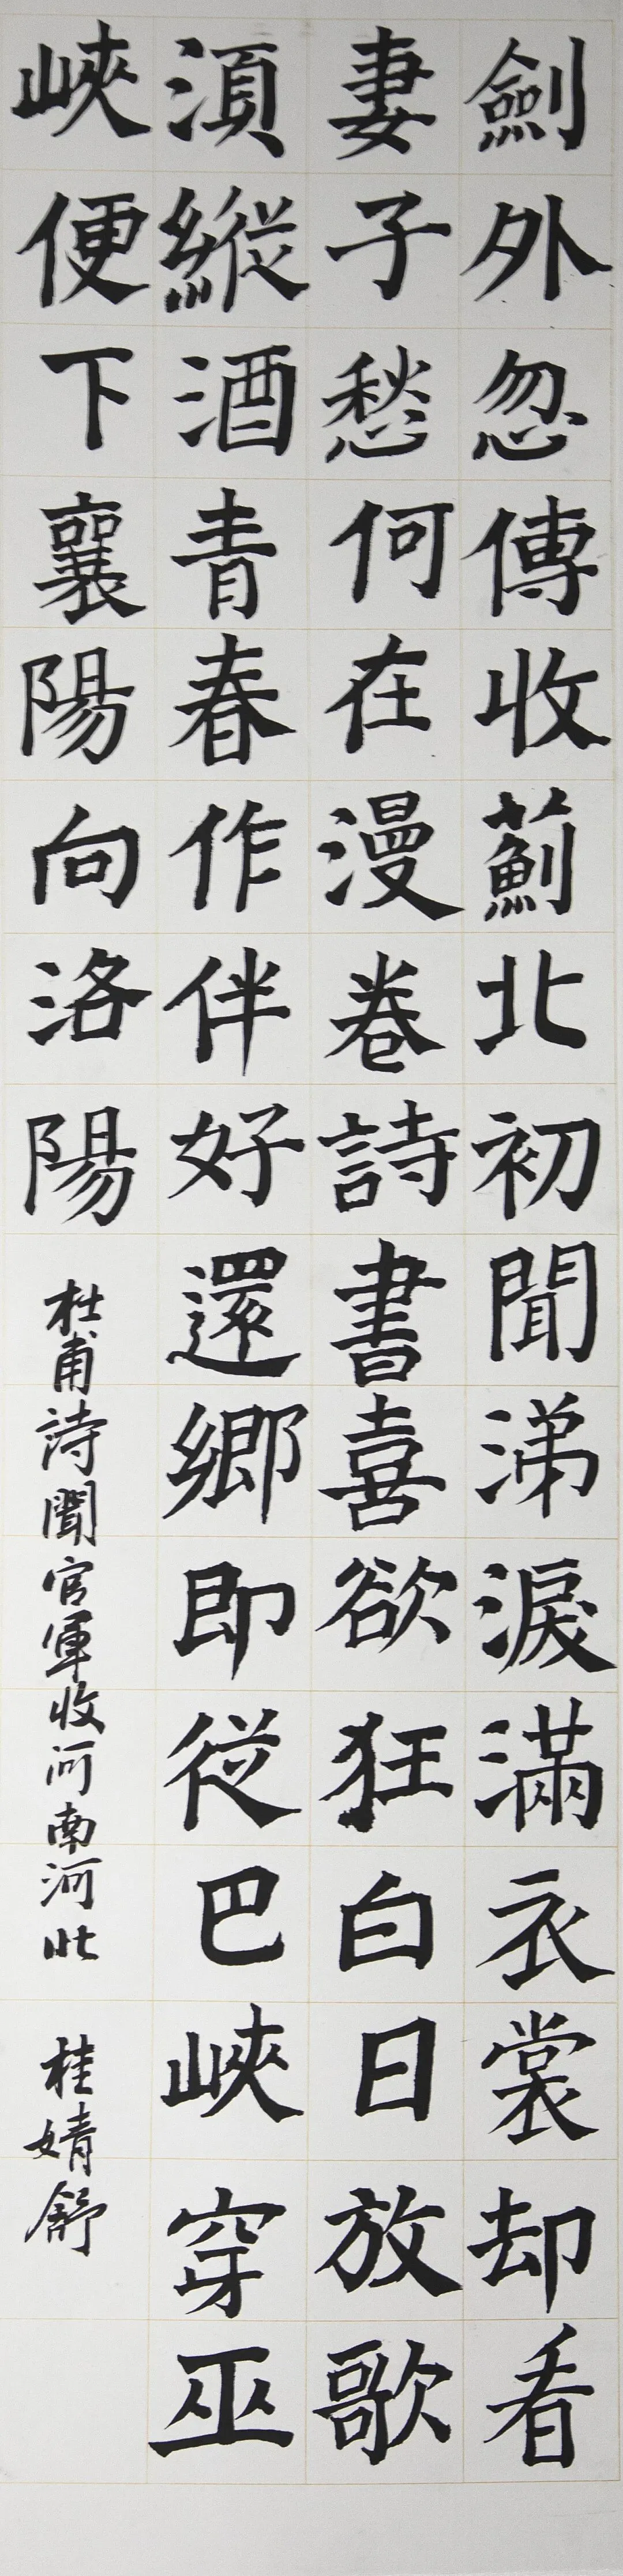 劍外忽傳收薊北初聞涕淚滿衣裳却看
妻子愁何在漫卷詩書喜欲狂白日放歌
須縱酒青春作伴好還鄉即從巴峽穿巫
峽便下襄陽向洛陽
杜甫詩聞官軍收河南河北 桂婧舒